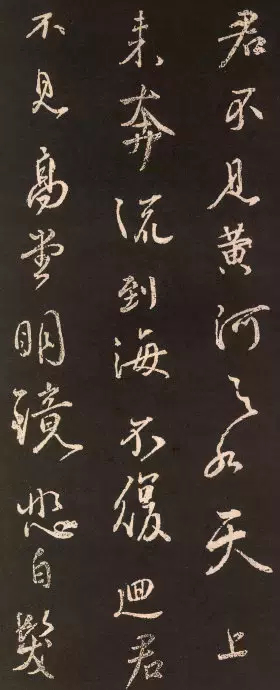 君不见黄河之水天上
来奔流到海不復迴君
不见高堂明鏡悲白髮